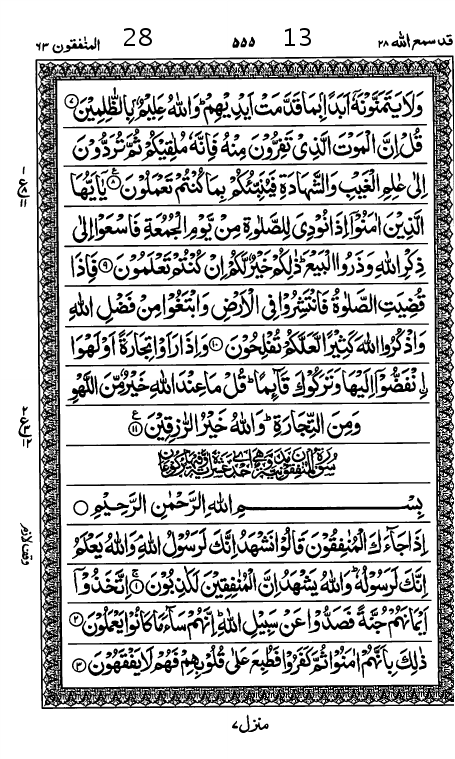 قد سمع الله ٢٨ 13 ٥٥٥ 28 المنٰفقون ٦٣
وَلَا يَتَمَنَّوْنَهٗۤ اَبَدًۢا بِمَا قَدَّمَتْ اَيْدِيْهِمْ ؕ وَاللّٰهُ عَلِيْمٌۢ بِالظّٰلِمِيْنَ ۝۷
قُلْ اِنَّ الْمَوْتَ الَّذِيْ تَفِرُّوْنَ مِنْهُ فَاِنَّهٗ مُلٰقِيْكُمْ ثُمَّ تُرَدُّوْنَ
اِلٰى عٰلِمِ الْغَيْبِ وَالشَّهَادَةِ فَيُنَبِّئُكُمْ بِمَا كُنْتُمْ تَعْمَلُوْنَ ۝۸ يٰۤاَيُّهَا
الَّذِيْنَ اٰمَنُوْۤا اِذَا نُوْدِيَ لِلصَّلٰوةِ مِنْ يَّوْمِ الْجُمُعَةِ فَاسْعَوْا اِلٰى
ذِكْرِ اللّٰهِ وَذَرُوا الْبَيْعَ ؕ ذٰلِكُمْ خَيْرٌ لَّكُمْ اِنْ كُنْتُمْ تَعْلَمُوْنَ ۝۹ فَاِذَا
قُضِيَتِ الصَّلٰوةُ فَانْتَشِرُوْا فِي الْاَرْضِ وَابْتَغُوْا مِنْ فَضْلِ اللّٰهِ
وَاذْكُرُوا اللّٰهَ كَثِيْرًا لَّعَلَّكُمْ تُفْلِحُوْنَ ۝۱۰ وَاِذَا رَاَوْا تِجَارَةً اَوْ لَهْوَا
۟انْفَضُّوْۤا اِلَيْهَا وَتَرَكُوْكَ قَآئِمًا ؕ قُلْ مَا عِنْدَ اللّٰهِ خَيْرٌ مِّنَ اللَّهْوِ
وَمِنَ التِّجَارَةِ ؕ وَاللّٰهُ خَيْرُ الرّٰزِقِيْنَ ۝۱۱
بِسْمِ اللّٰهِ الرَّحْمٰنِ الرَّحِيْمِ
اِذَا جَآءَكَ الْمُنٰفِقُوْنَ قَالُوْا نَشْهَدُ اِنَّكَ لَرَسُوْلُ اللّٰهِ ۘ وَاللّٰهُ يَعْلَمُ
اِنَّكَ لَرَسُوْلُهٗ ؕ وَاللّٰهُ يَشْهَدُ اِنَّ الْمُنٰفِقِيْنَ لَكٰذِبُوْنَ ۝۱ اِتَّخَذُوْۤا
اَيْمَانَهُمْ جُنَّةً فَصَدُّوْا عَنْ سَبِيْلِ اللّٰهِ ؕ اِنَّهُمْ سَآءَ مَا كَانُوْا يَعْمَلُوْنَ ۝۲
ذٰلِكَ بِاَنَّهُمْ اٰمَنُوْا ثُمَّ كَفَرُوْا فَطُبِعَ عَلٰى قُلُوْبِهِمْ فَهُمْ لَا يَفْقَهُوْنَ ۝۳
منزل ٧